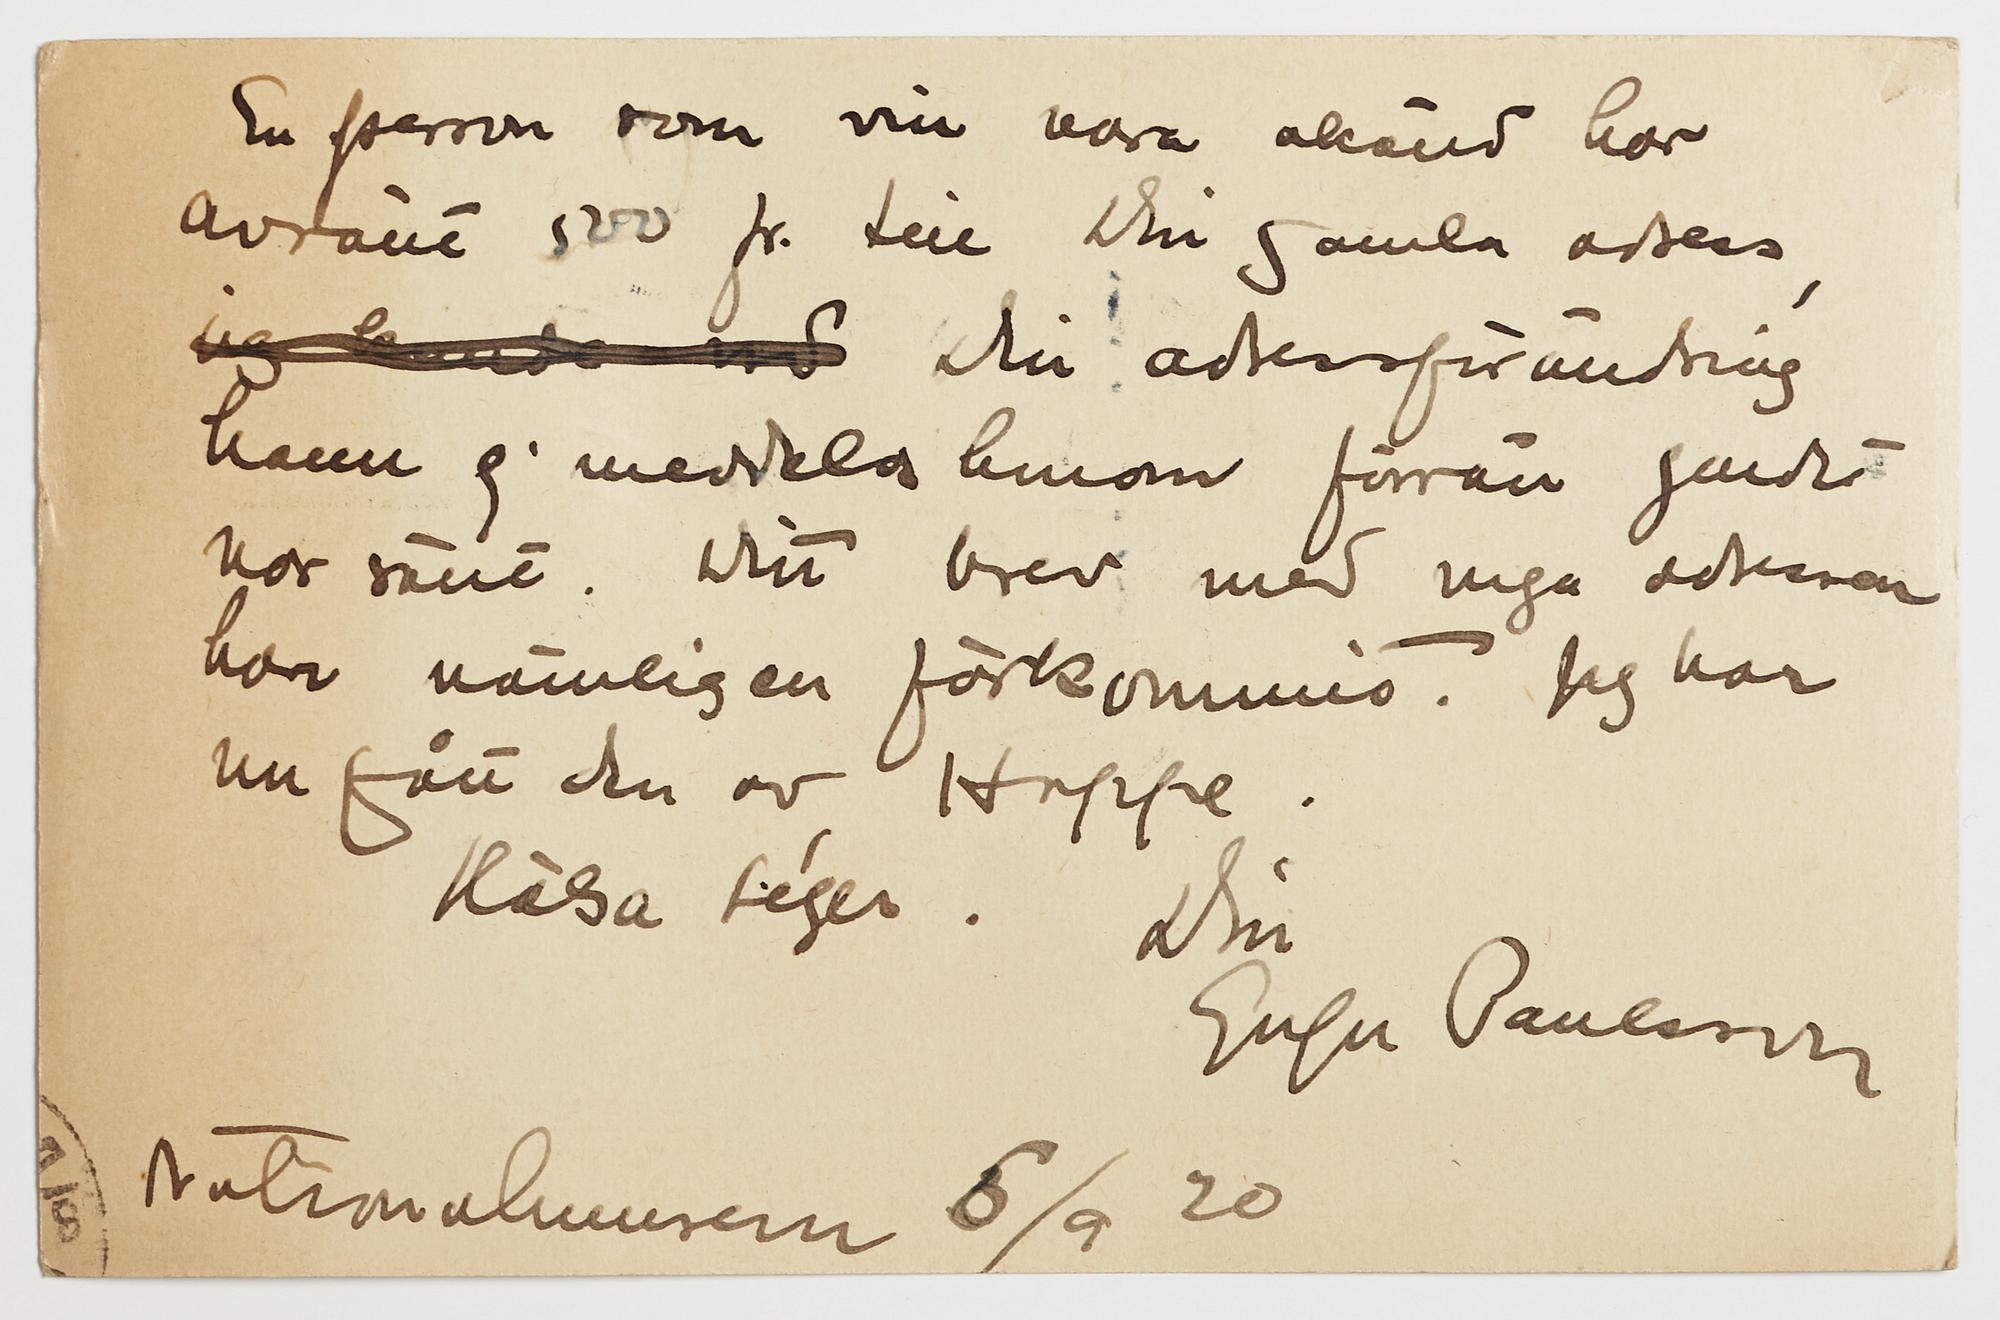 En person som vill vara okänd har
avsänt 500 fr. till Din gamla adress,
jag kunde Din adressförändring
hann ej meddelas honom förrän
var sänt. Ditt brev med nya adressen
har nämligen förkommit. Jag har
nu fått den av Hoppe.
Hälsa Téger.
Din
Gregor Paulsson
Nationalmuseum 6/9 20